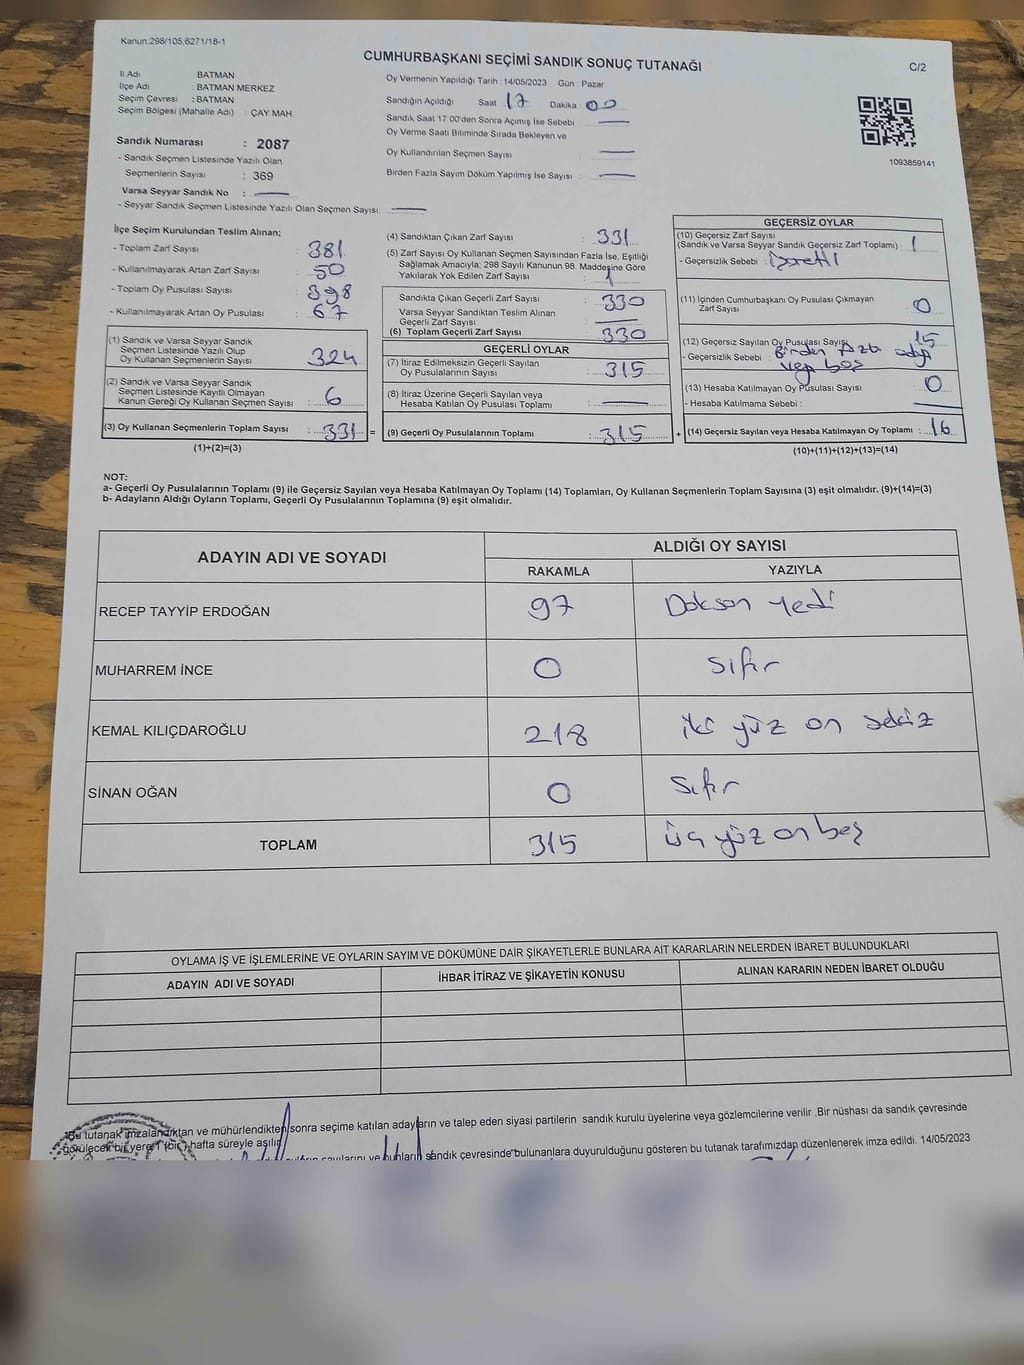 Kanun.298/105,6271/18-1
CUMHURBAŞKANI SEÇİMİ SANDIK SONUÇ TUTANAĞI
C/2
İl Adı BATMAN
İlçe Adı : BATMAN MERKEZ
Seçim Çevresi : BATMAN
Seçim Bölgesi (Mahalle Adı) : ÇAY MAH.
Sandık Numarası : 2087
- Sandık Seçmen Listesinde Yazılı Olan
Seçmenlerin Sayısı : 369
Varsa Seyyar Sandık No :
- Seyyar Sandık Seçmen Listesinde Yazılı Olan Seçmen Sayısı:
Oy Vermenin Yapıldığı Tarih : 14/05/2023 Gün : Pazar
Sandığın Açıldığı Saat : 17 Dakika : 00
Sandık Saat 17:00'den Sonra Açımış İse Sebebi :
Oy Verme Saati Bitiminde Sırada Bekleyen ve
Oy Kullandırılan Seçmen Sayısı :
Birden Fazla Sayım Döküm Yapılmış İse Sayısı :
1093859141
İlçe Seçim Kurulundan Teslim Alınan;
- Toplam Zarf Sayısı : 381
- Kullanılmayarak Artan Zarf Sayısı : 50
- Toplam Oy Pusulası Sayısı : 398
- Kullanılmayarak Artan Oy Pusulası : 67
(1) Sandık ve Varsa Seyyar Sandık
Seçmen Listesinde Yazılı Olup
Oy Kullanan Seçmenlerin Sayısı : 324
(2) Sandık ve Varsa Seyyar Sandık
Seçmen Listesinde Kayıtlı Olmayan
Kanun Gereği Oy Kullanan Seçmen Sayısı : 6
(3) Oy Kullanan Seçmenlerin Toplam Sayısı : 331 =
(1)+(2)=(3)
(4) Sandıktan Çıkan Zarf Sayısı : 331
(5) Zarf Sayısı Oy Kullanan Seçmen Sayısından Fazla İse, Eşitliği
Sağlamak Amacıyla; 298 Sayılı Kanunun 98. Maddesine Göre
Yakılarak Yok Edilen Zarf Sayısı : 1
Sandıkta Çıkan Geçerli Zarf Sayısı : 330
Varsa Seyyar Sandıktan Teslim Alınan
Geçerli Zarf Sayısı :
(6) Toplam Geçerli Zarf Sayısı : 330
GEÇERLİ OYLAR
(7) İtiraz Edilmeksizin Geçerli Sayılan
Oy Pusulalarının Sayısı : 315
(8) İtiraz Üzerine Geçerli Sayılan veya
Hesaba Katılan Oy Pusulası Toplamı :
(9) Geçerli Oy Pusulalarının Toplamı : 315 +
GEÇERSİZ OYLAR
(10) Geçersiz Zarf Sayısı
(Sandık ve Varsa Seyyar Sandık Geçersiz Zarf Toplamı) : 1
- Geçersizlik Sebebi :
(11) İçinden Cumhurbaşkanı Oy Pusulası Çıkmayan
Zarf Sayısı : 0
(12) Geçersiz Sayılan Oy Pusulası Sayısı : 15
- Geçersizlik Sebebi : Birden
boş
(13) Hesaba Katılmayan Oy Pusulası Sayısı : 0
- Hesaba Katılmama Sebebi :
(14) Geçersiz Sayılan veya Hesaba Katılmayan Oy Toplamı : 16
(10)+(11)+(12)+(13)=(14)
NOT:
a- Geçerli Oy Pusulalarının Toplamı (9) ile Geçersiz Sayılan veya Hesaba Katılmayan Oy Toplamı (14) Toplamları, Oy Kullanan Seçmenlerin Toplam Sayısına (3) eşit olmalıdır. (9)+(14)=(3)
b- Adayların Aldığı Oyların Toplamı, Geçerli Oy Pusulalarının Toplamına (9) eşit olmalıdır.
ADAYIN ADI VE SOYADI ALDIĞI OY SAYISI
RAKAMLA YAZIYLA
RECEP TAYYİP ERDOĞAN 97 Doksan Yedi
MUHARREM İNCE 0 Sıfır
KEMAL KILIÇDAROĞLU 218 iki yüz on sekiz
SİNAN OĞAN 0 Sıfır
TOPLAM 315 üç yüz on beş
OYLAMA İŞ VE İŞLEMLERİNE VE OYLARIN SAYIM VE DÖKÜMÜNE DAİR ŞİKAYETLERLE BUNLARA AİT KARARLARIN NELERDEN İBARET BULUNDUKLARI
ADAYIN ADI VE SOYADI İHBAR İTİRAZ VE ŞİKAYETİN KONUSU ALINAN KARARIN NEDEN İBARET OLDUĞU
*Bu tutanak imzalandıktan ve mühürlendikten sonra seçime katılan adayların ve talep eden siyasi partilerin sandık kurulu üyelerine veya gözlemcilerine verilir .Bir nüshası da sandık çevresinde
görülecek bir yere 1 (bir) hafta süreyle asılır.
sayılarını ve bunların sandık çevresinde bulunanlara duyurulduğunu gösteren bu tutanak tarafımızdan düzenlenerek imza edildi. 14/05/2023